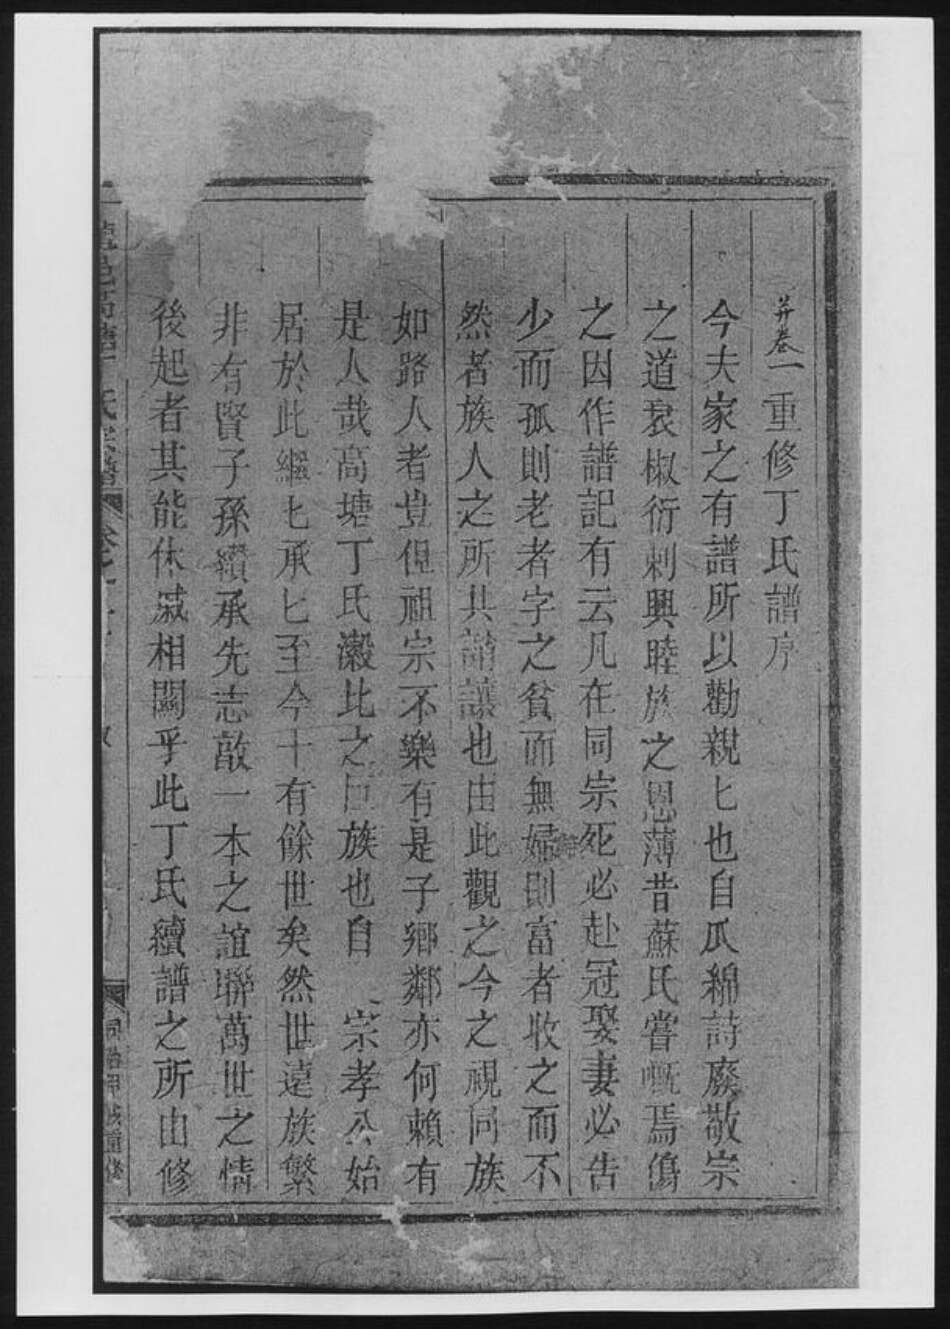 并卷一重修丁氏譜序
今夫家之有譜所以勸親匕也自瓜綿詩廢敬宗
之道衰椒衍刺興睦族之恩薄昔蘇氏嘗嘅焉傷
之因作譜記有云凡在同宗死必赴冠娶妻必告
少而孤則老者字之貧而無婦則富者收之而不
然者族人之所共誚讓也由此觀之今之視同族
如路人者豈但祖宗不樂有是子鄉鄰亦何賴有
是人哉高塘丁氏瀫北之巨族也自 宗孝公始
居於此繼匕承匕至今十有餘世矣然世遠族繁
非有賢子孫纘承先志敵一本之誼聯萬世之情
後起者其能休戚相關乎此丁氏續譜之所由修
邑高塘丁氏宗譜 卷之一 同治甲戌重修